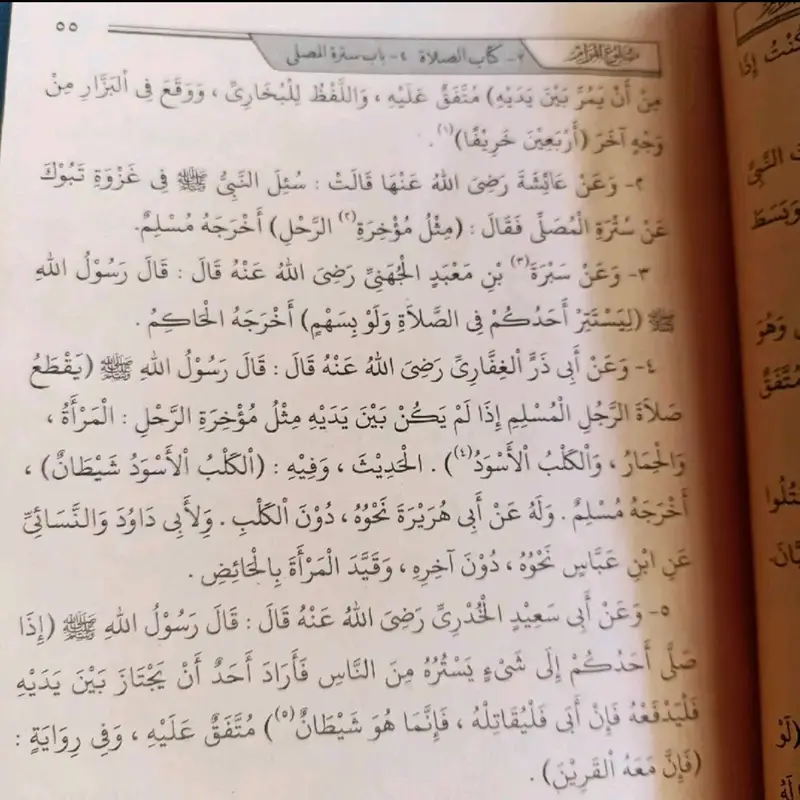 بلوغ المرام ٢- كتاب الصلاة ٤- باب سترة المصلي ٥٥
مِنْ أَنْ يَمُرَّ بَيْنَ يَدَيْهِ) مُتَّفَقٌ عَلَيْهِ ، وَاللَّفْظُ لِلْبُخَارِىِّ ، وَوَقَعَ فِى ٱلْبَزَّارِ مِنْ
وَجْهٍ آخَرَ (أَرْبَعِيْنَ خَرِيْفًا)(١) .
٢- وَعَنْ عَائِشَةَ رَضِىَ اللهُ عَنْهَا قَالَتْ : سُئِلَ النَّبِىُّ ﷺ فِى غَزْوَةِ تَبُوْكَ
عَنْ سُتْرَةِ الْمُصَلِّى فَقَالَ : (مِثْلُ مُؤْخِرَةِ(٢) الرَّحْلِ) أَخْرَجَهُ مُسْلِمٌ.
٣- وَعَنْ سَبْرَةَ(٣) بْنِ مَعْبَدٍ الْجُهَنِىِّ رَضِىَ اللهُ عَنْهُ قَالَ : قَالَ رَسُوْلُ اللهِ
ﷺ (لِيَسْتَتِرْ أَحَدُكُمْ فِى الصَّلَاةِ وَلَوْ بِسَهْمٍ) أَخْرَجَهُ الْحَاكِمُ .
٤- وَعَنْ أَبِى ذَرٍّ ٱلْغِفَّارِىِّ رَضِىَ اللهُ عَنْهُ قَالَ : قَالَ رَسُوْلُ اللهِ ﷺ (يَقْطَعُ
صَلَاةَ الرَّجُلِ الْمُسْلِمِ إِذَا لَمْ يَكُنْ بَيْنَ يَدَيْهِ مِثْلُ مُؤْخِرَةِ الرَّحْلِ : الْمَرْأَةُ ،
وَالْحِمَارُ ، وَٱلْكَلْبُ ٱلْأَسْوَدُ(٤)) . الْحَدِيْثَ ، وَفِيْهِ : (ٱلْكَلْبُ ٱلْأَسْوَدُ شَيْطَانٌ) ،
أَخْرَجَهُ مُسْلِمٌ . وَلَهُ عَنْ أَبِى هُرَيْرَةَ نَحْوُهُ ، دُوْنَ ٱلْكَلْبِ . وَلِأَبِى دَاوُدَ وَالنَّسَائِىِّ
عَنِ ابْنِ عَبَّاسٍ نَحْوُهُ ، دُوْنَ آخِرِهِ ، وَقَيَّدَ الْمَرْأَةَ بِالْحَائِضِ .
٥- وَعَنْ أَبِى سَعِيْدٍ الْخُدْرِىِّ رَضِىَ اللهُ عَنْهُ قَالَ : قَالَ رَسُوْلُ اللهِ ﷺ (إِذَا
صَلَّى أَحَدُكُمْ إِلَى شَىْءٍ يَسْتُرُهُ مِنَ النَّاسِ فَأَرَادَ أَحَدٌ أَنْ يَجْتَازَ بَيْنَ يَدَيْهِ
فَلْيَدْفَعْهُ فَإِنْ أَبَى فَلْيُقَاتِلْهُ ، فَإِنَّمَا هُوَ شَيْطَانٌ(٥)) مُتَّفَقٌ عَلَيْهِ ، وَفِى رِوَايَةٍ :
(فَإِنَّ مَعَهُ ٱلْقَرِيْنَ) .